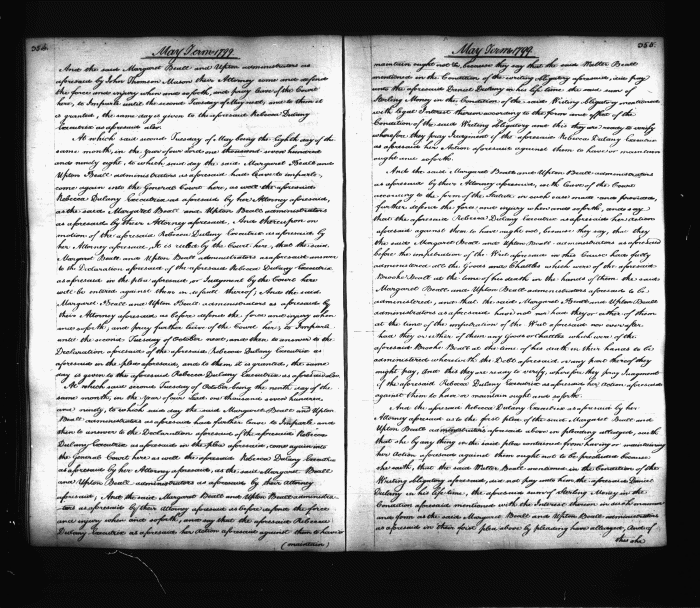 354.
May Term 1799
And the said Margaret Beall and Upton administrators as
aforesaid by John Thomson Mason their Attorney come and defend
the force and injury when and soforth, and pray leave of the Court
here, to Imparle until the second Tuesday of May next, and to them it
is granted, the same day is given to the aforesaid Rebecca Dulany
Executrix as aforesaid also.
At which said second Tuesday of May being the Eighth day of the
same month, in the year of our Lord one thousand seven hundred
and ninety eight, to which said day the said Margaret Beall and
Upton Beall administrators as aforesaid had leave to imparle,
come again into the General Court here, as well the aforesaid
Rebecca Dulany Executrix as aforesaid by her Attorney aforesaid,
as the said Margaret Beall and Upton Beall administrators
as aforesaid by their Attorney aforesaid. And thereupon on
motion of the aforesaid Rebecca Dulany Executrix as aforesaid by
her Attorney aforesaid, It is ruled by the Court here, that the said
Margaret Beall and Upton Beall administrators as aforesaid answer
to the Declaration aforesaid of the aforesaid Rebecca Dulany Executrix
as aforesaid in the plea aforesaid or Judgment by the Court here
will be entered against them in default thereof; And the said
Margaret Beall and Upton Beall administrators as aforesaid by
their Attorney aforesaid as before defend the force and injury when
and soforth, and pray further leave of the Court here, to Imparle
until the second Tuesday of October next, and then to answer to the
Declaration aforesaid of the aforesaid Rebecca Dulany Executrix as
aforesaid in the plea aforesaid, and to them it is granted, the same
day is given to the aforesaid Rebecca Dulany Executrix as aforesaid also.
At which said second Tuesday of October being the ninth day of the
same month, in the year of our Lord one thousand seven hundred
and ninety, to which said day the said Margaret Beall and Upton
Beall administrators as aforesaid had further leave to Imparle and
then to answer to the Declaration aforesaid of the aforesaid Rebecca
Dulany Executrix as aforesaid in the plea aforesaid, come again into
the General Court here as well the aforesaid Rebecca Dulany Executrix
as aforesaid by her Attorney aforesaid, as the said Margaret Beall
and Upton Beall administrators as aforesaid by their Attorney
aforesaid; And the said Margaret Beall and Upton Beall administra-
tors as aforesaid by their Attorney aforesaid as before defend the force
and injury when and soforth, and say that the aforesaid Rebecca
Dulany Executrix as aforesaid her action aforesaid against them to have or
(maintain)
355.
May Term 1799
maintain ought not to, because they say that the said Walter Beall
mentioned in the Condition of the writing Obligatory aforesaid, did pay
unto the aforesaid Daniel Dulany in his life time the said sum of
Sterling Money in the Condition of the said Writing Obligatory mentioned
with legal Interest thereon according to the form and effect of the
Condition of the said Writing Obligatory and this they are ready to verify
wherefore they pray Judgment if the aforesaid Rebecca Dulany Executrix
as aforesaid her Action aforesaid against them to have or maintain
ought and soforth.
And the said Margaret Beall and Upton Beall administrators
as aforesaid by their Attorney aforesaid, with leave of the Court
according to the form of the Statute in such case made and provided,
further defend the force and injury when and soforth, and say
that the aforesaid Rebecca Dulany Executrix as aforesaid her Action
aforesaid against them to have ought not, because they say, that they
the said Margaret Beall and Upton Beall administrators as aforesaid
before the impetration of the Writ aforesaid in this Court had fully
administered all the Goods and Chattles which were of the aforesaid
Brooke Beall at the time of his death in the hands of them the said
Margaret Beall and Upton Beall administrators aforesaid to be
administered, and that the said Margaret Beall and Upton Beall
administrators as aforesaid have not nor had they or either of them
at the time of the impetration of the Writ aforesaid nor ever after
had they or either of them any Goods or Chattles which were of the
aforesaid Brooke Beall at the time of his death in their hands to be
administered wherewith the Debt aforesaid or any part thereof they
might pay, And this they are ready to verify, wherefore they pray Judgment
if the aforesaid Rebecca Dulany Executrix as aforesaid her Action aforesaid
against them to have or maintain ought and soforth.
And the aforesaid Rebecca Dulany Executrix as aforesaid by her
Attorney aforesaid as to the first plea of the said Margaret Beall and
Upton Beall administrators aforesaid above in pleading alledged, saith
that she by any thing in the said plea contained from having or maintaining
her Action aforesaid against them ought not to be precluded because
she saith, that the said Walter Beall mentioned in the Condition of the
Writing Obligatory aforesaid, did not pay unto him the aforesaid Daniel
Dulany in his life time, the aforesaid sum of Sterling Money in the
Condition aforesaid mentioned with the Interest thereon in such manner
and form as the said Margaret Beall and Upton Beall administrators
as aforesaid in their first plea above by pleading have alledged, And of
this she